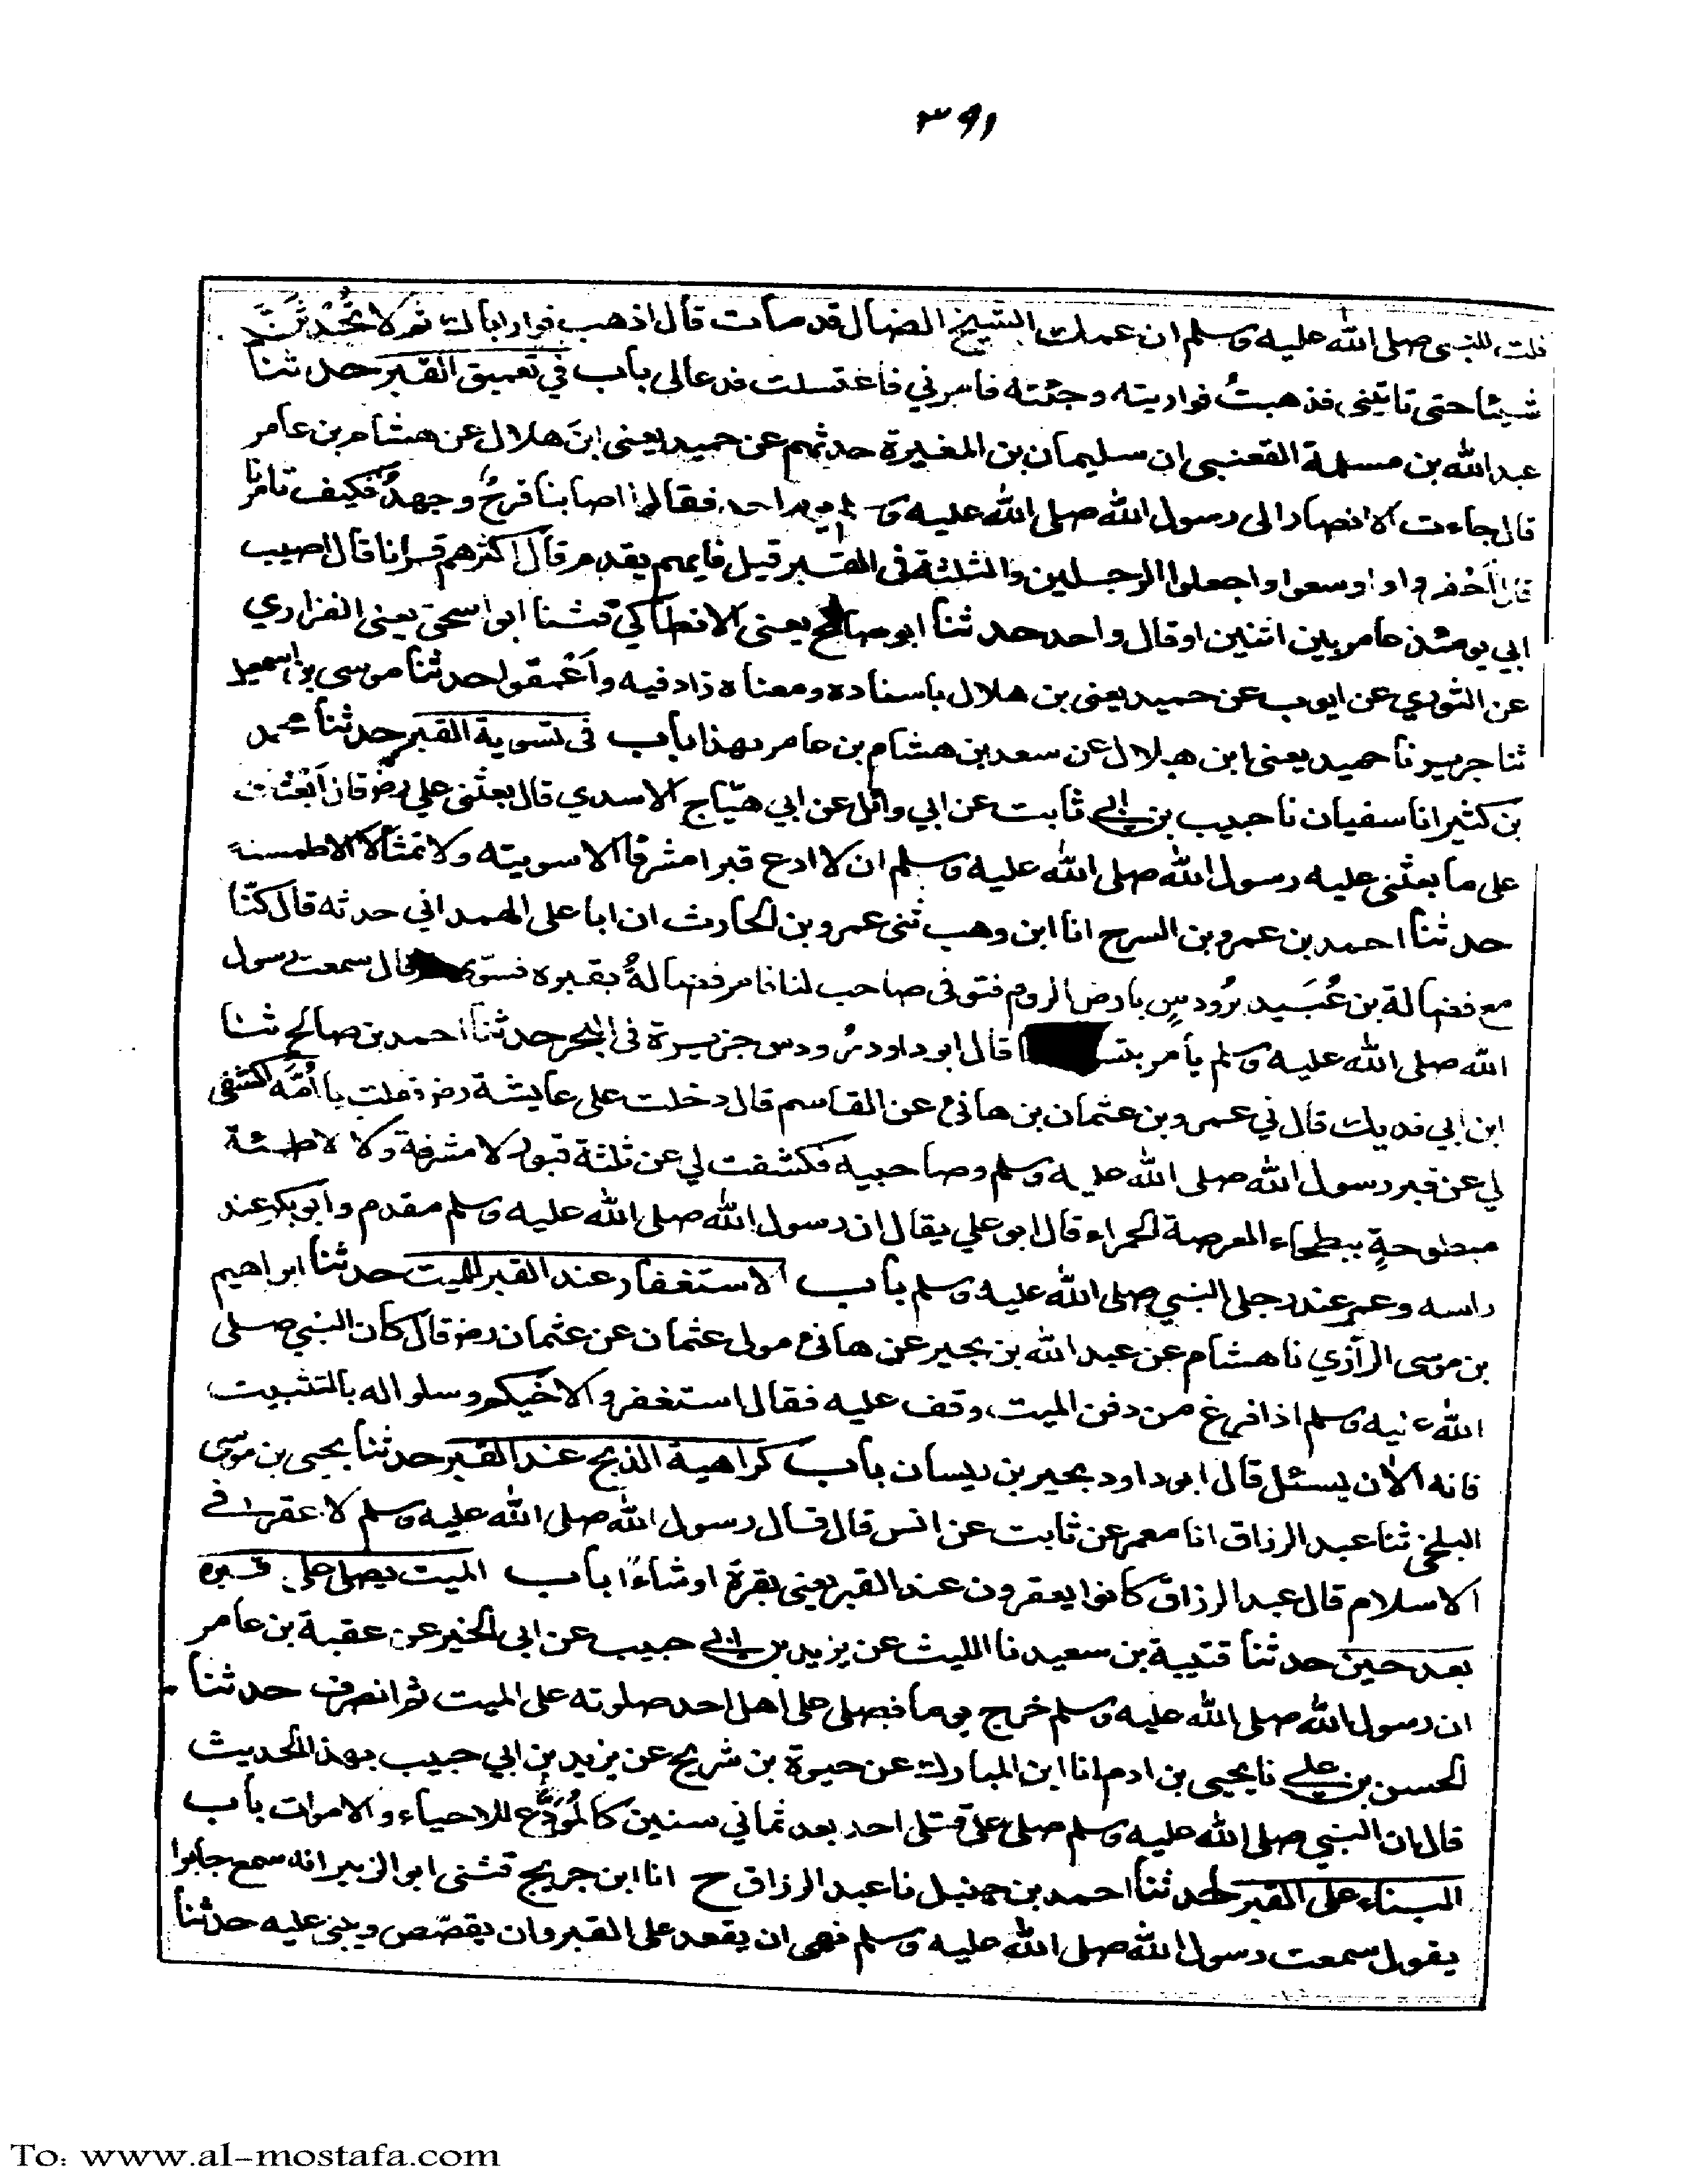 ٣٩١
قلت للنبي صلى الله عليه وسلم ان عمك الشيخ الضال قد مات قال اذهب فوار اباك ثم لا تُحْدِثَنَّ
شيئا حتى تاتيني فذهبتُ فواريته وجئته فامرني فاغتسلت فدعالى باب في تعميق القبر حدثنا
عبد الله بن مسلمة القعنبى ان سليمان بن المغيرة حدثهم عن حميد يعنى ابنَ هلال عن هشام بن عامر
قال جاءت الانصار الى رسول الله صلى الله عليه وسلم يوم احد فقالوا اصابنا قرحٌ وجهدٌ فكيف تامرنا
قال اَحْفروا واوسعوا واجعلوا الرجلين والثلثة فى القبر قيل فايهم يقدم قال اكثرهم قرانا قال اصيب
ابي يومئذ عامر بين اثنين او قال واحد حدثنا ابو صالح يعنى الانطاكي قثنا ابو اسحق يعنى الفزاري
عن الثوري عن ايوب عن حميد يعنى بن هلال باسناده ومعناه زاد فيه وأَعْمقوا حدثنا موسى بن اسمعيل
ثنا جرير نا حميد يعنى ابن هلال عن سعد بن هشام بن عامر بهذا باب فى تسوية القبر حدثنا محمد
بن كثير انا سفيان نا حبيب بن ابي ثابت عن ابي وائل عن ابي هيّاج الاسدي قال بعثنى علي رضر قال اَبْعثك
على ما بعثنى عليه رسول الله صلى الله عليه وسلم ان لا ادع قبرا مشرفا الا سويته ولا تمثالا الا طمسته
حدثنا احمد بن عمرو بن السرح انا ابن وهب ثنى عمرو بن الحارث ان ابا على الهمداني حدثه قال كنّا
مع فضالة بن عُبَيد برُودسٍ بارض الروم فتوفى صاحب لنا فامر فضالةُ بقبره فسوّى قال سمعت رسول
الله صلى الله عليه وسلم يأمر بتسـ قال ابو داود رُودس جزيرة فى البحر حدثنا احمد بن صالح ثنا
ابن ابي فديك قال ني عمرو بن عثمان بن هانئ عن القاسم قال دخلت على عايشة رضر فقلت يا اُمَّه اكشفى
لي عن قبر رسول الله صلى الله عليه وسلم وصاحبيه فكشفت لي عن ثلثة قبور لا مشرفة ولا لاطئة
مبطوحةٍ ببطحاء العرصة الحمراء قال ابو علي يقال ان رسول الله صلى الله عليه وسلم مقدم وابو بكر عند
راسه وعمر عند رجلى النبي صلى الله عليه وسلم باب الاستغفار عند القبر للميت حدثنا ابراهيم
بن موسى الرازي نا هشام عن عبد الله بن بحير عن هانئ مولى عثمان عن عثمان رضر قال كان النبي صلى
الله عليه وسلم اذا فرغ من دفن الميت وقف عليه فقال استغفروا لاخيكم وسلوا اله بالتثبيت
فانه الآن يسئل قال ابو داود بحير بن ريسان باب كراهية الذبح عند القبر حدثنا يحيى بن موسى
البلخي ثنا عبد الرزاق انا معمر عن ثابت عن انس قال قال رسول الله صلى الله عليه وسلم لا عقر فى
الاسلام قال عبد الرزاق كانوا يعقرون عند القبر يعنى بقرة او شاءً باب الميت يصلى على قبره
بعد حين حدثنا قتيبة بن سعيد نا الليث عن يزيد بن ابي حبيب عن ابي الخير عن عقبة بن عامر
ان رسول الله صلى الله عليه وسلم خرج يوما فصلى على اهل احد صلوته على الميت ثم انصرف حدثنا
الحسن بن علي نا يحيى بن ادم انا ابن المبارك عن حيوة بن شريح عن يزيد بن ابي حبيب بهذا الحديث
قال ان النبي صلى الله عليه وسلم صلى على قتلى احد بعد ثماني سنين كالمُودِّع للاحياء والاموات باب
البناء على القبر حدثنا احمد بن حنبل نا عبد الرزاق ح انا ابن جريج قثنى ابو الزبير انه سمع جابرا
يقول سمعت رسول الله صلى الله عليه وسلم نهى ان يقعد على القبر وان يقصّص ويبنى عليه حدثنا
To: www.al-mostafa.com